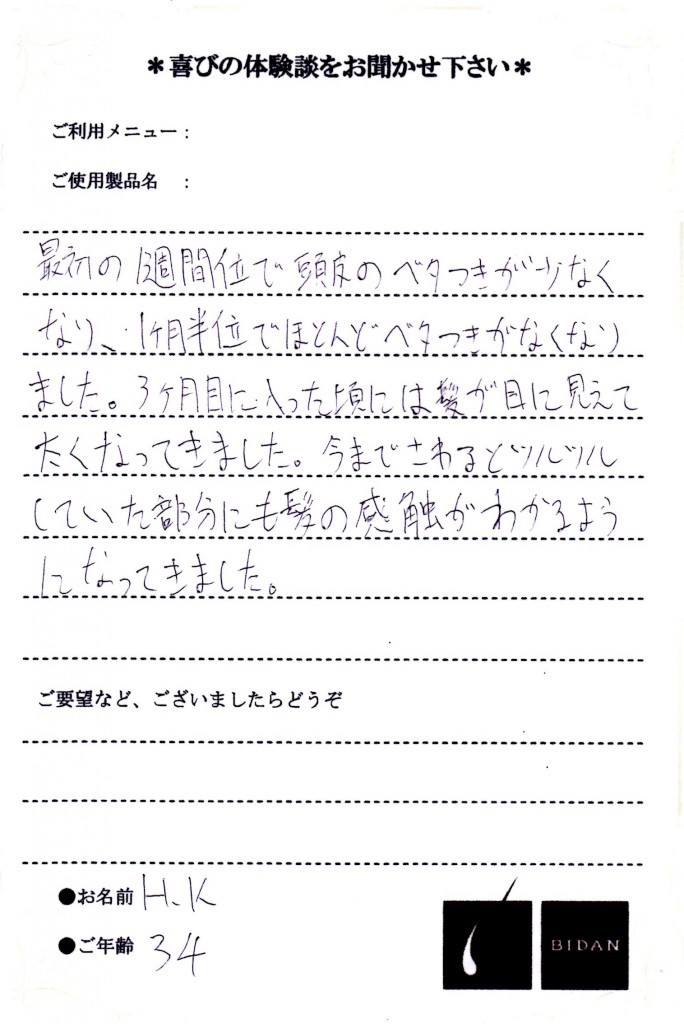 ＊喜びの体験談をお聞かせ下さい＊
ご利用メニュー：
ご使用製品名　：
最初の1週間位で頭皮のベタつきが少なく
なり、1ヶ月半位でほとんどベタつきがなくなり
ました。3ヶ月目に入った頃には髪が目に見えて
太くなってきました。今までさわるとツルツル
していた部分にも髪の感触がわかるよう
になってきました。
ご要望など、ございましたらどうぞ
●お名前 H.K
●ご年齢 34
BIDAN